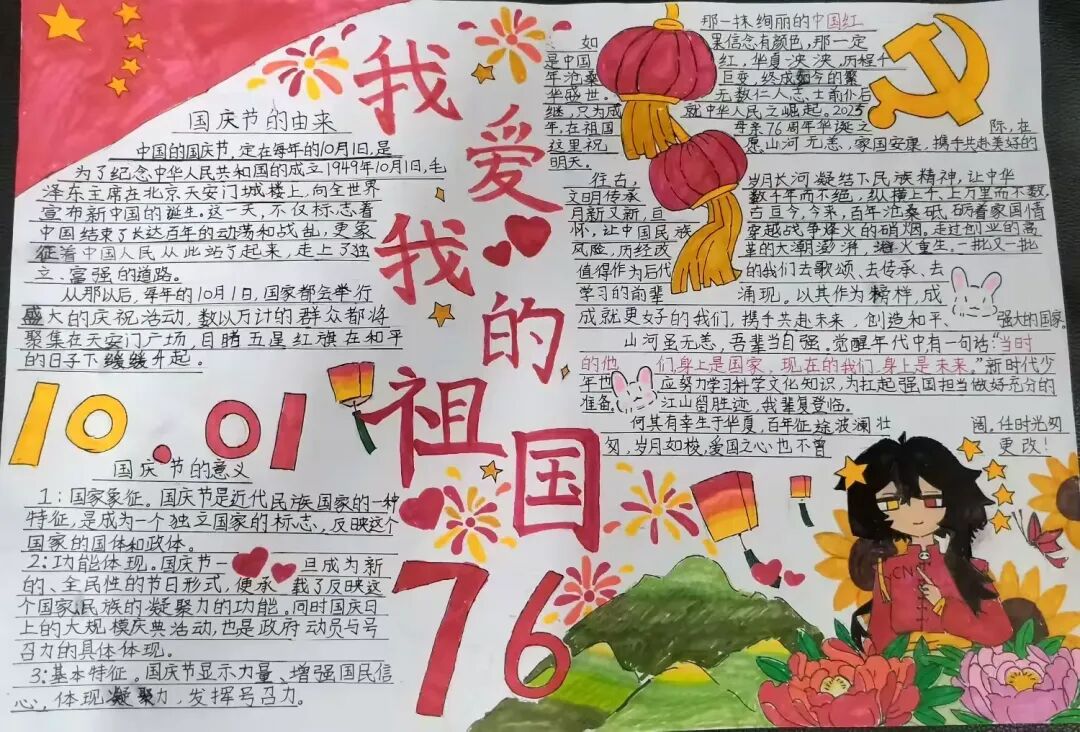 我爱我的祖国
国庆节的由来
中国的国庆节,定在每年的10月1日,是
为了纪念中华人民共和国的成立1949年10月1日,毛
泽东主席在北京天安门城楼上,向全世界
宣布新中国的诞生。这一天,不仅标志着
中国结束了长达百年的动荡和战乱,更象
征着中国人民从此站了起来,走上了独
立、富强的道路。
从那以后,每年的10月1日,国家都会举行
盛大的庆祝活动,数以万计的群众都将
聚集在天安门广场,目睹五星红旗在和平
的日子下缓缓升起。
10.01
国庆节的意义
1:国家象征。国庆节是近代民族国家的一种
特征,是成为一个独立国家的标志,反映这个
国家的国体和政体。
2:功能体现。国庆节一旦成为新
的、全民性的节日形式,便承载了反映这
个国家、民族的凝聚力的功能。同时国庆日
上的大规模庆典活动,也是政府动员与号
召力的具体体现。
3:基本特征。国庆节显示力量、增强国民信
心,体现凝聚力,发挥号召力。
76
那一抹绚丽的中国红
如果信念有颜色,那一定
是中国红,华夏泱泱,历程千
年沧桑巨变,终成如今的繁
华盛世。无数仁人志士前仆后
继,只为成就中华人民之崛起。2025
年,在祖国母亲76周年华诞之际,在
这里祝愿山河无恙,家国安康,携手共赴美好的
明天。
行古,岁月长河凝结下民族精神,让中华
文明传承数千年而不绝,纵横上千上万里而不数,
月新又新,亘古亘今,今来,百年沧桑砥砺着家国情
怀,让中国民族穿越战争烽火的硝烟。走过创业的高
风险,历经改革的大潮澎湃,浴火重生,一批又一批
值得作为后代的我们去歌颂、去传承、去
学习的前辈涌现。以其作为榜样,成
成就更好的我们,携手共赴未来,创造和平、强大的国家。
山河虽无恙,吾辈当自强。觉醒年代中有一句话:“当时
的他们,身上是国家,现在的我们,身上是未来。”新时代少
年也应努力学习科学文化知识,为扛起强国担当做好充分的
准备。江山留胜迹,我辈复登临。
何其有幸生于华夏,百年征途波澜壮阔。任时光匆
匆,岁月如梭,爱国之心也不曾更改!
CN